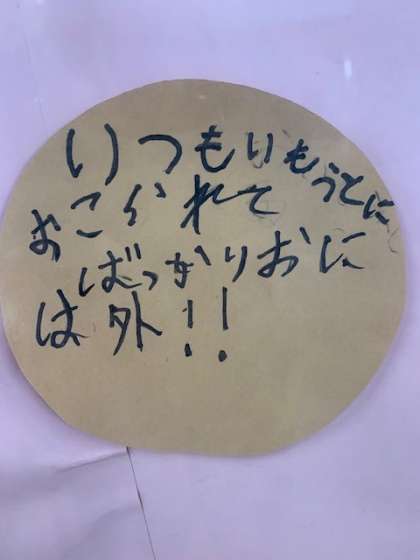 いつもいもうとに
おこられて
ばっかりおに
は外!!